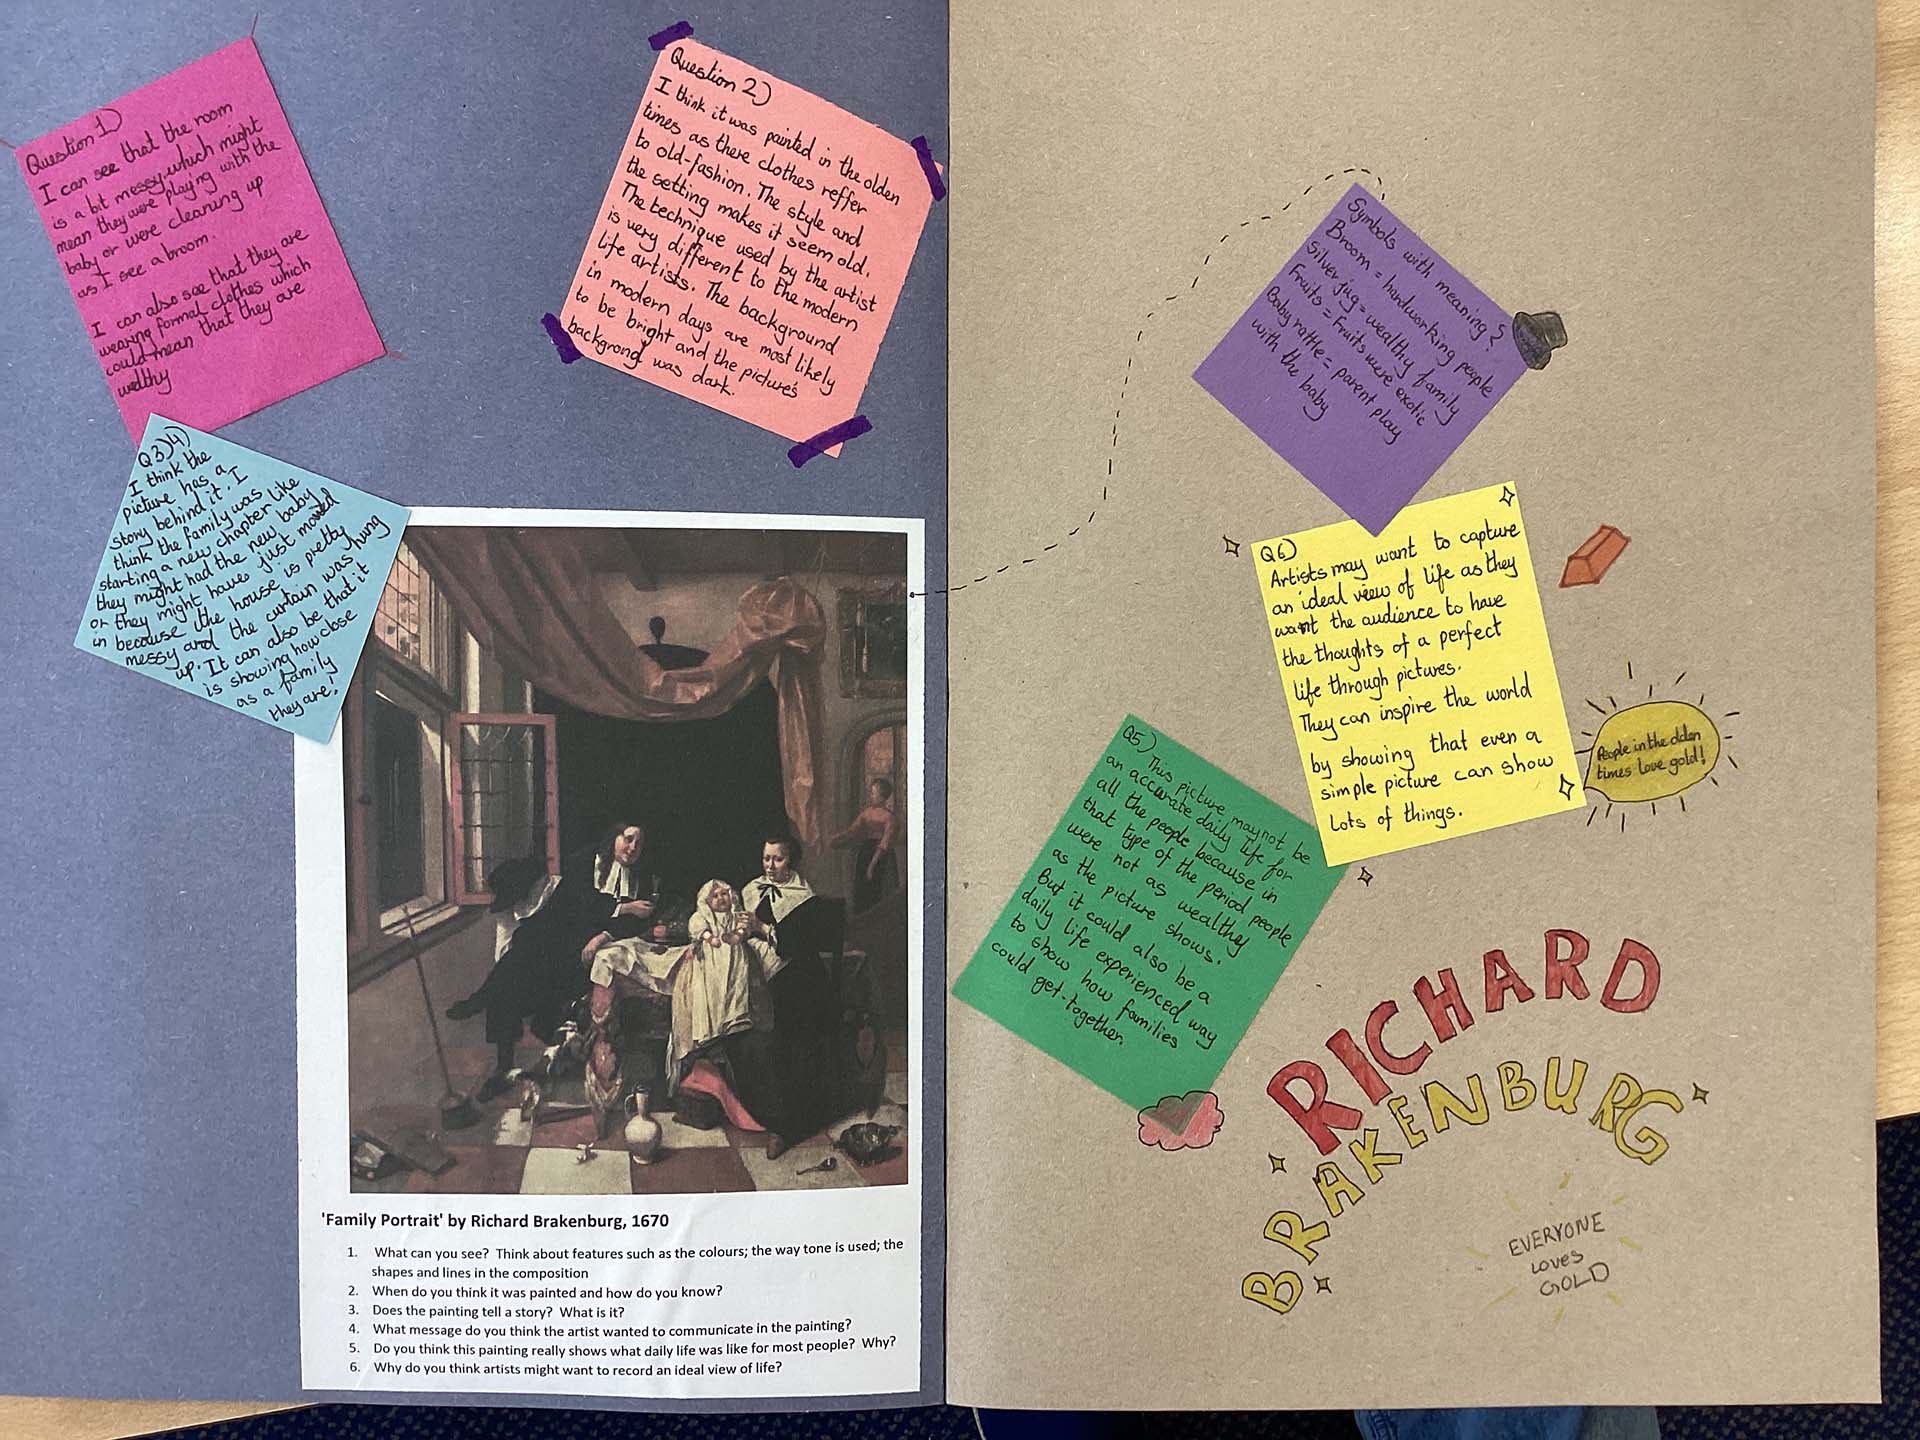 Question 1)
I can see that the room
is a bit messy which might
mean they were playing with the
baby or were cleaning up
as I see a broom.
I can also see that they are
wearing formal clothes which
could mean that they are
wealthy
Question 2)
I think it was painted in the olden
times as there clothes reffer
to old-fashion. The style and
the setting makes it seem old.
The technique used by the artist
is very different to the modern
life artists. The background
in modern days are most likely
to be bright and the picture's
backgrond was dark.
Q3)4)
I think the
picture has a
story behind it. I
think the family was
starting a new chapter like
they might had the new baby
or they might have just moved
in because the house is pretty
messy and the curtain was hung
up. It can also be that it
is showing how close
as a family
they are!
'Family Portrait' by Richard Brakenburg, 1670
1. What can you see? Think about features such as the colours; the way tone is used; the
shapes and lines in the composition
2. When do you think it was painted and how do you know?
3. Does the painting tell a story? What is it?
4. What message do you think the artist wanted to communicate in the painting?
5. Do you think this painting really shows what daily life was like for most people? Why?
6. Why do you think artists might want to record an ideal view of life?
Symbols with meaning?
Broom = hardworking people
Silver jug = wealthy family
Fruits = Fruits were exotic
Baby rattle = parent play
with the baby
Q6)
Artists may want to capture
an ideal view of life as they
want the audience to have
the thoughts of a perfect
life through pictures.
They can inspire the world
by showing that even a
simple picture can show
lots of things.
People in the olden
times love gold!
Q5) This picture may not be
an accurate daily life for
all the people because in
that type of the period people
were not as wealthy
as the picture shows.
But it could also be a
daily life experienced way
to show how families
could get-together.
RICHARD
BRAKENBURG
EVERYONE
LOVES
GOLD